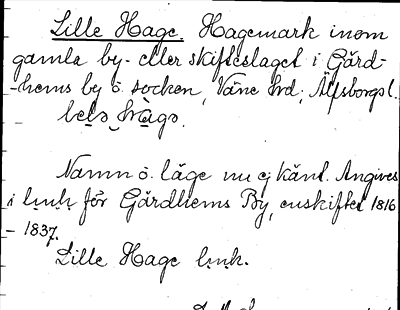 Lille Hage. Hagemark inom
gamla by- eller skifteslaget i Gärd-
-hems by o. socken, Väne hrd; Älfsborgs l.
Namn o. läge nu ej känt. Angives
i lmk för Gärdhems By, enskiftet 1816
- 1837.
Lille Hage lmk.